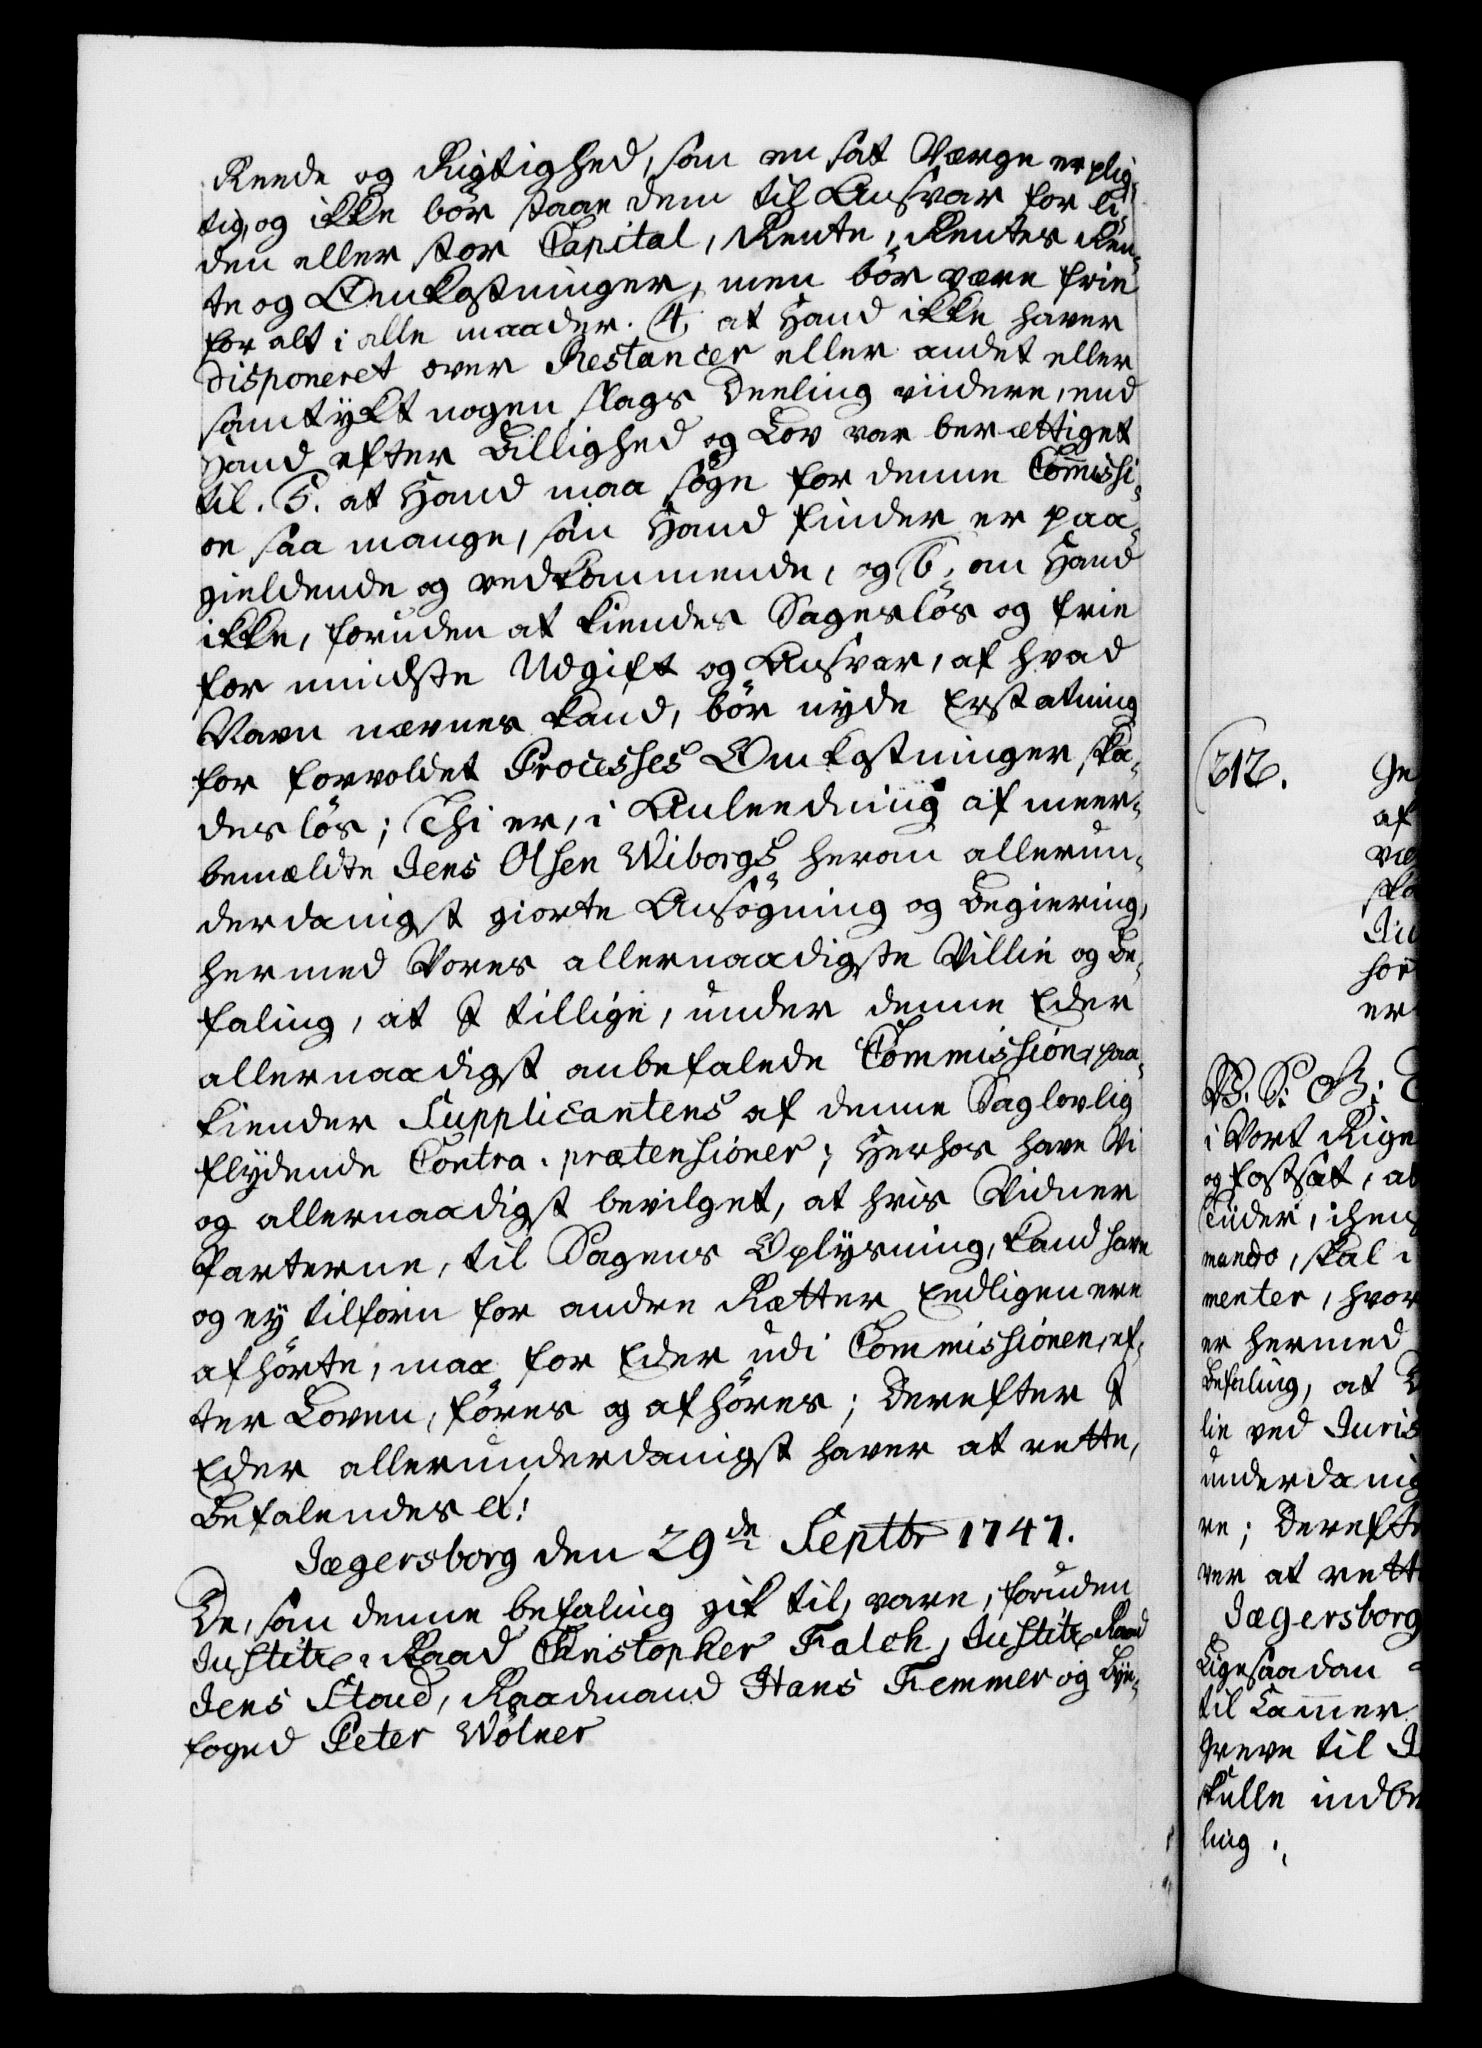 Reede og Rigtighed, som en sat Værge er plig-
tig, og ikke bör staae dem til Ansvar for li-
den eller stor Capital, Rente, Rentes Ren-
te og Omkostninger, men bör være frie
for alt i alle maader. 4, at Hand ikke haver
disponeret over Restancer eller andet eller
samtykt nogen slags Deeling viidere, end
Hand efter Billighed og Lov var berættiget
til. 5. at Hand maa söge for denne Commissi-
on saa mange, som Hand finder er paa-
gieldende og vedkommende, og 6, om Hand
ikke, foruden at kiendes Sageslös og frie
for mindste Udgift og Ansvar, af hvad
Navn nævnes kand, bör nyde Erstatning
for forvoldet Processes Omkostninger ska-
deslös; Thi er, i Anleedning af meer-
bemældte Jens Olsen Wiborgs herom allerun-
derdanigst giorte Ansögning og Begiering,
hermed Vores allernaadigste Villie og Be-
faling, at I tillige, under denne Eder
allernaadigst anbefalede Commission, paa-
kiender Supplicantens af denne Sag lovlig
flydende Contra-prætensioner; Herhos have Vi
og allernaadigst bevilget, at hvis Vidner
Parterne, til Sagens Oplysning, kand have
og ey tilforn for andre Rætter Eedligen ere
afhörte, maa for Eder udi Commissionen, ef-
ter Loven, föres og afhöres; Derefter I
Eder allerunderdanigst haver at rette,
Befalendes et:
Jægersborg den 29de Septbr 1747.
De, som denne befaling gik til, vare, foruden
Justitz-Raad Christopher Falch, Justitz-Raad
Jens Stoud, Raadmand Hans Femmer og Bye-
foged Peter Wölner
212. Ge
af
ska
hör
er
V. S. G:
i Vort Rige
og fastsat, at
Tiider, ihen
mando, skal i
menter, hvor
er hermed
Befaling, at
lie ved Juris
underdanig
re; Derefter
ver at rette
Jægersborg
Ligesaadan
til Cammer
Greve til
skulle indbe
ling.